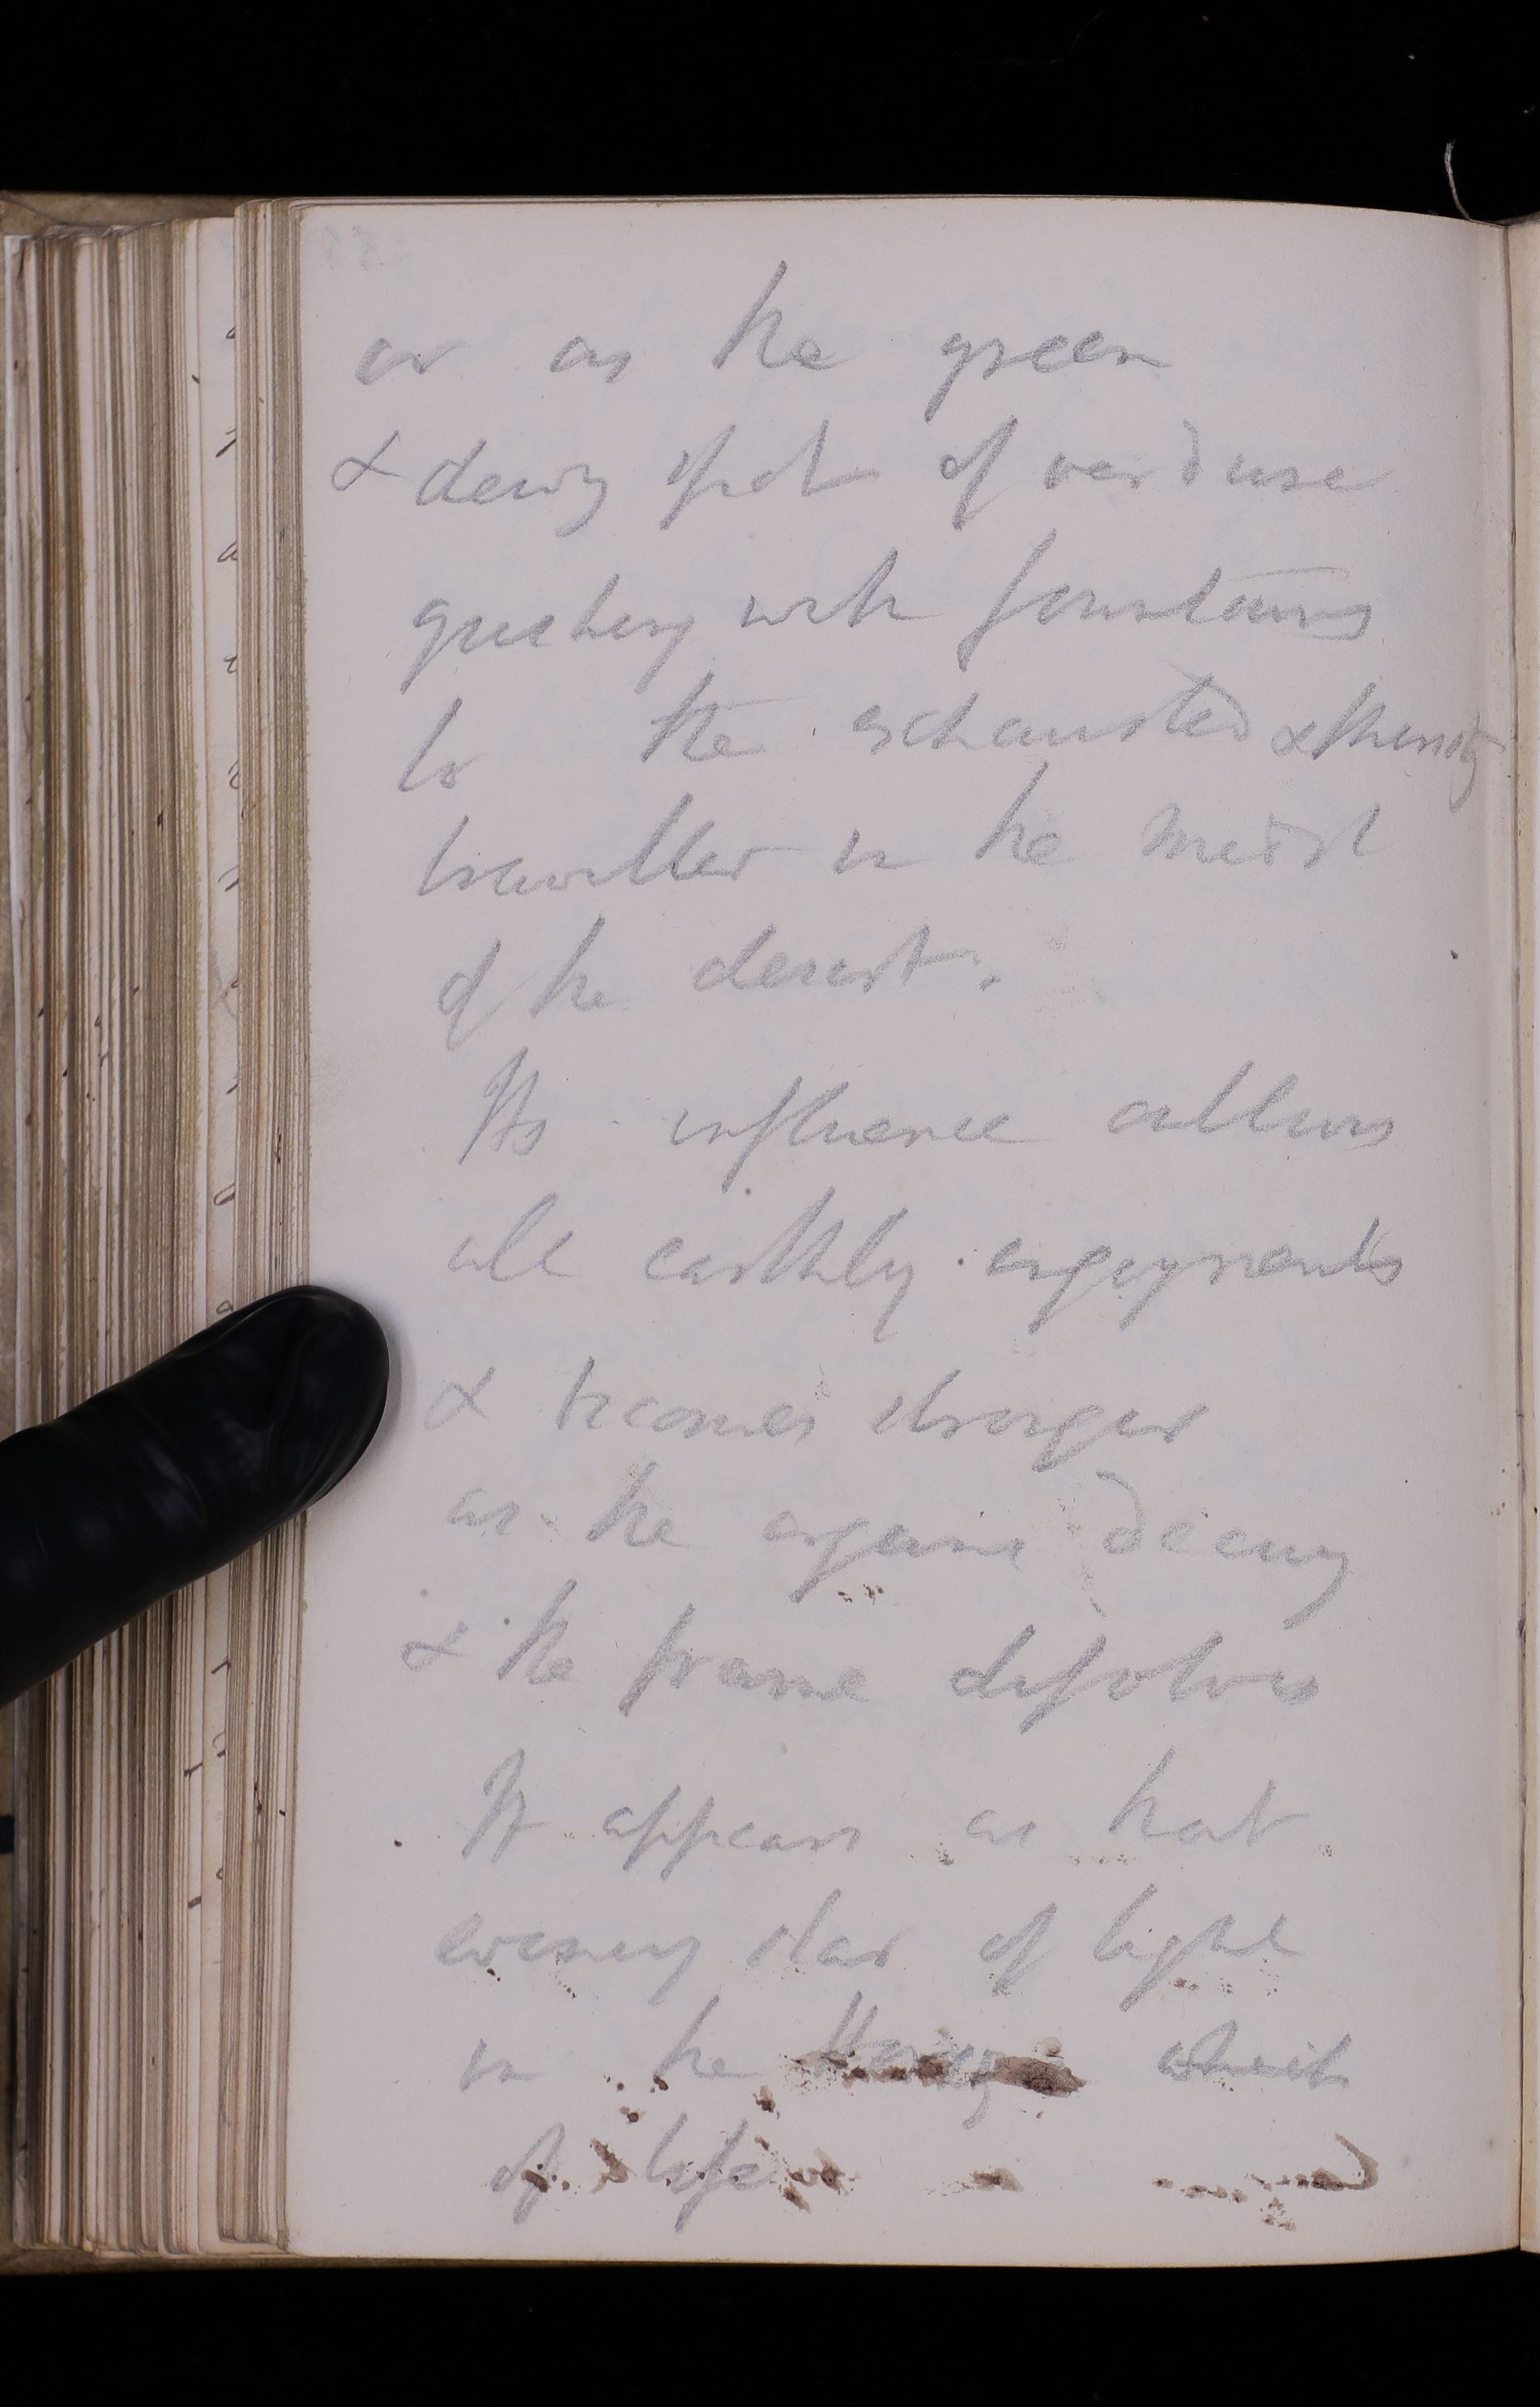 or as the green
& dewy spot of verdure
gushing with fountains
to the exhausted & thirsty
traveller in the midst
of the desert.
Its influence outlives
all earthly enjoyments
& becomes stronger
as the organs decay
& the frame dissolves
It appears as that
evening star of light
in the horizon which
of life